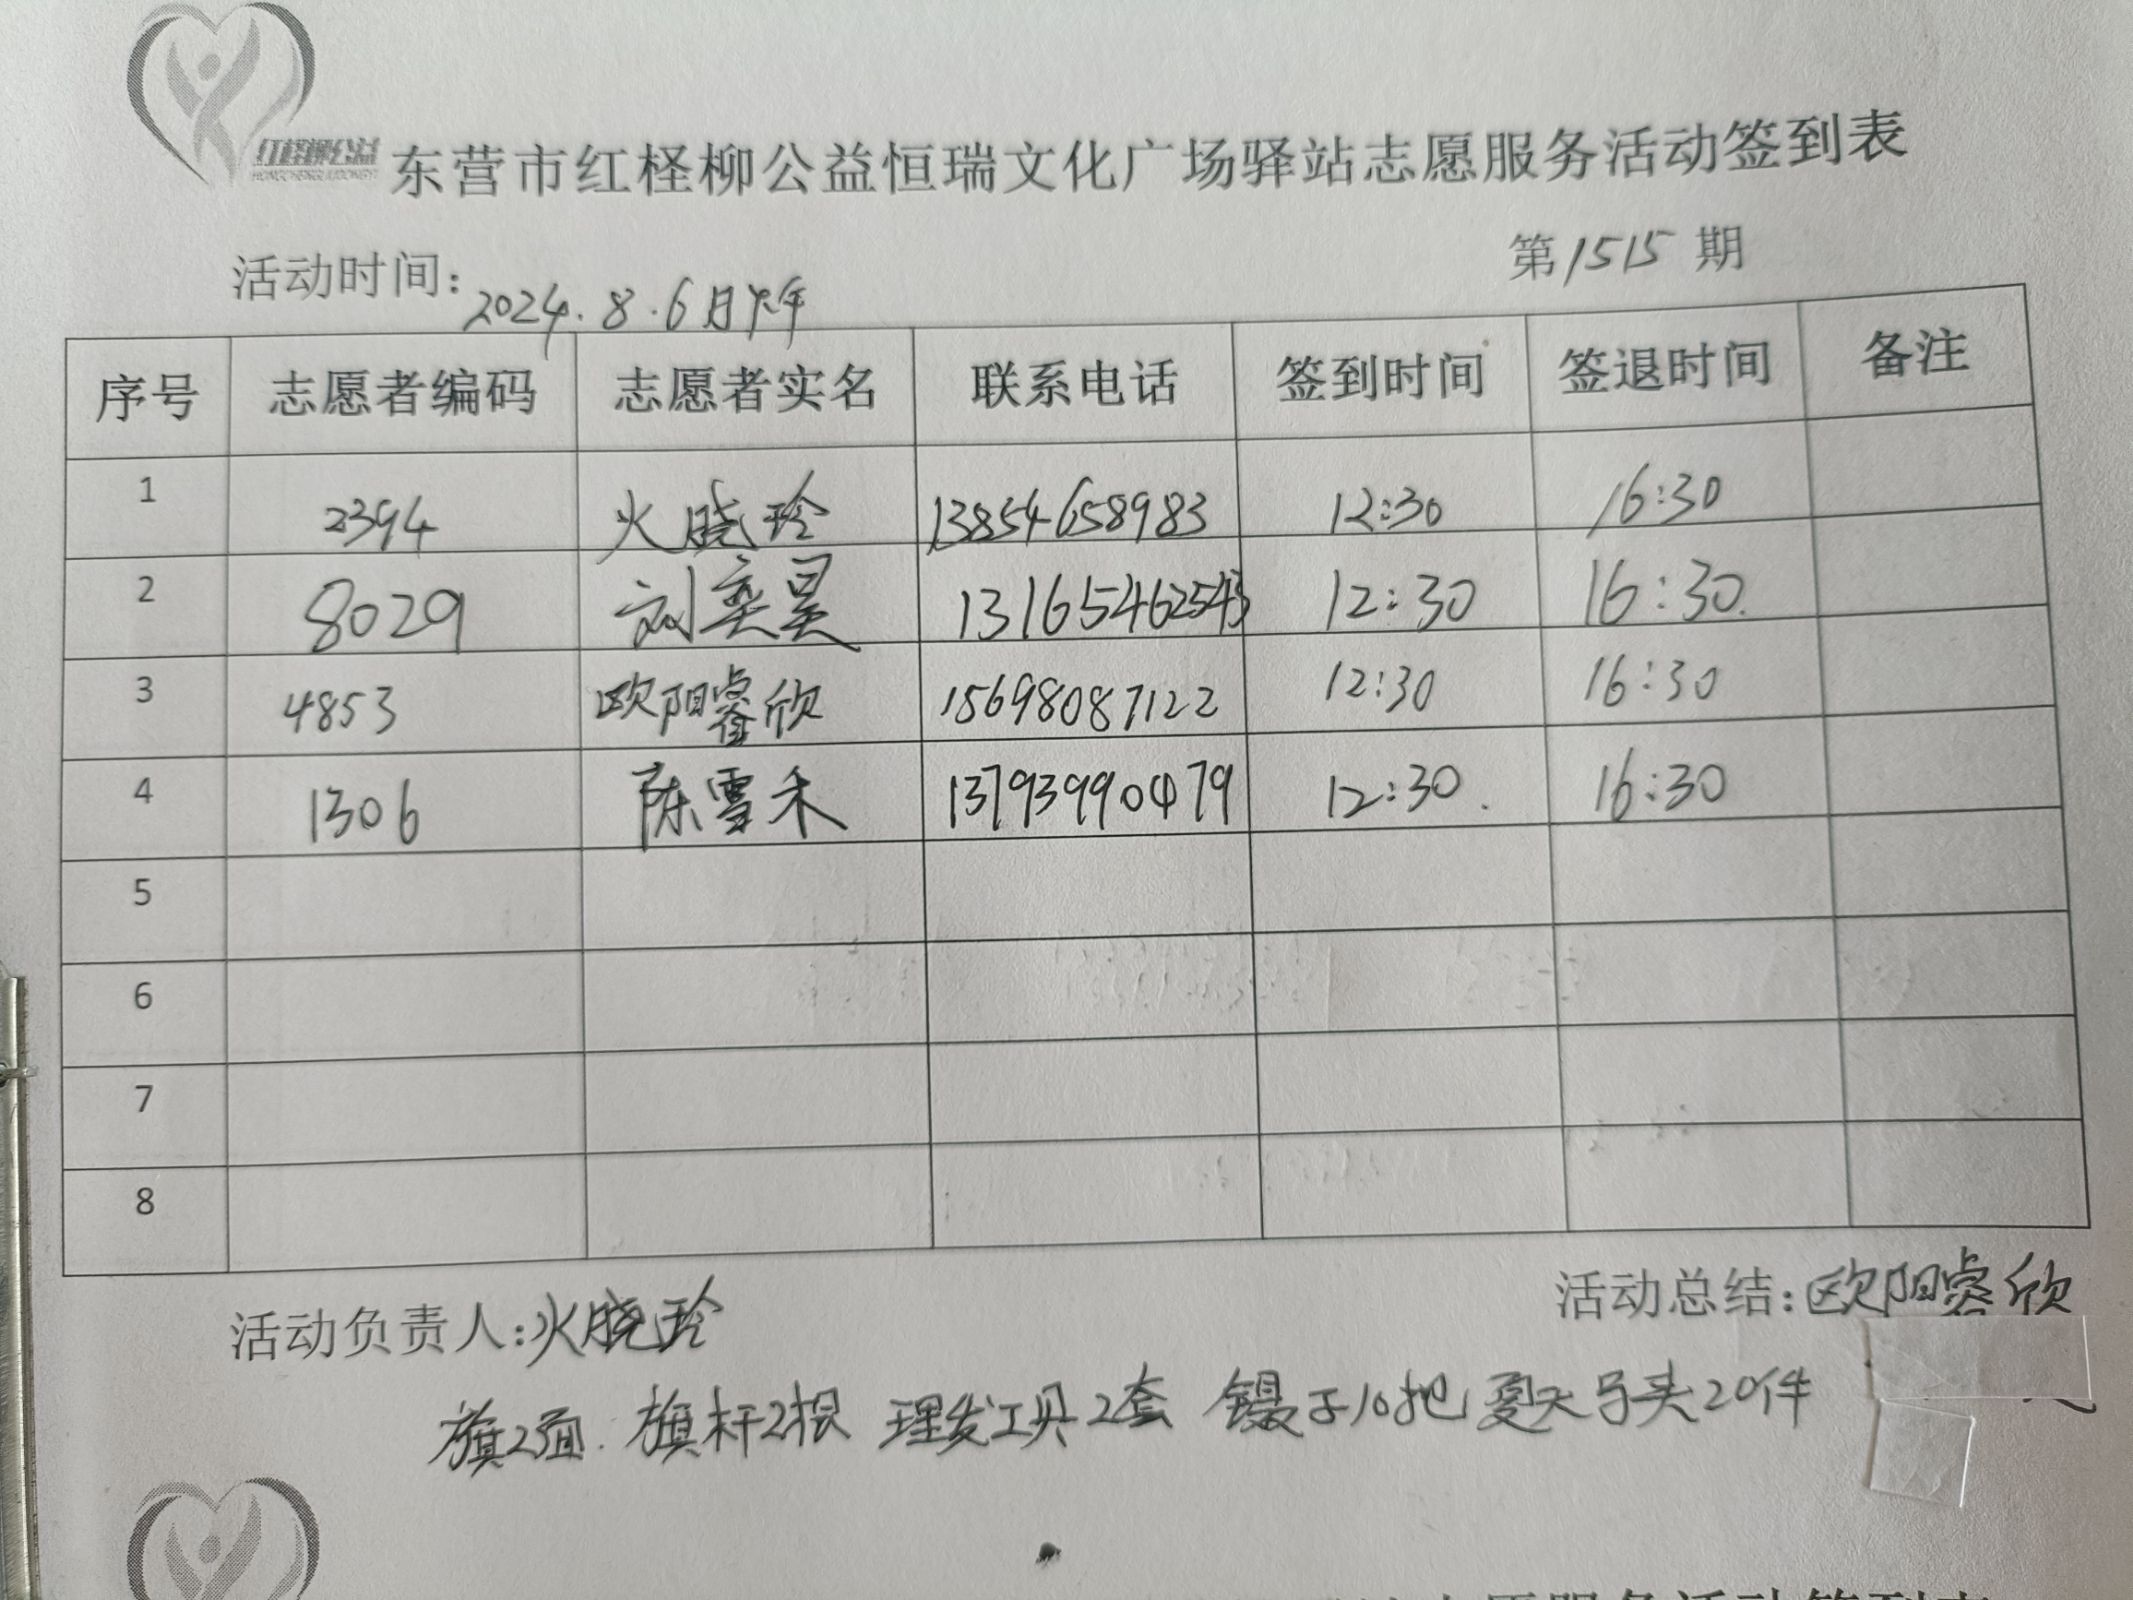 红柽柳公益
HONGCHENGLIUGONGYI
东营市红柽柳公益恒瑞文化广场驿站志愿服务活动签到表
活动时间：2024.8.6日下午 第1515期
序号 志愿者编码 志愿者实名 联系电话 签到时间 签退时间 备注
1 2394 火晓玲 13854658983 12:30 16:30
2 8029 刘奕昊 13165462543 12:30 16:30.
3 4853 欧阳睿欣 15698087122 12:30 16:30
4 1306 陈雪禾 13793990479 12:30. 16:30
5
6
7
8
活动负责人：火晓玲 活动总结：欧阳睿欣
旗2面. 旗杆2根 理发工具2套 镊子10把 夏天马夹20件
志愿服务活动签到表